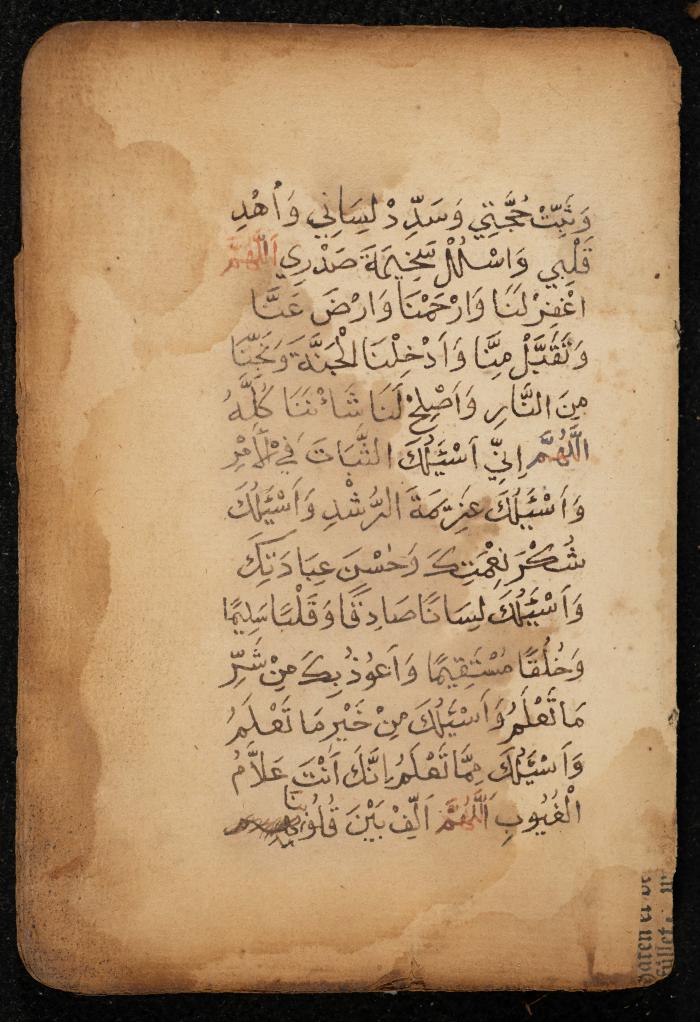 وَثَبِّتْ حُجَّتِي وَسَدِّدْ لِسَانِي وَاهْدِ
قَلْبِي وَاسْلُلْ سَخِيمَةَ صَدْرِي اَللّٰهُمَّ
اغْفِرْ لَنَا وَارْحَمْنَا وَارْضَ عَنَّا
وَتَقَبَّلْ مِنَّا وَاَدْخِلْنَا الْجَنَّةَ وَنَجِّنَا
مِنَ النَّارِ وَاَصْلِحْ لَنَا شَاْنَنَا كُلَّهُ
اَللّٰهُمَّ اِنِّي اَسْئَلُكَ الثَّبَاتَ فِي الْاَمْرِ
وَاَسْئَلُكَ عَزِيمَةَ الرُّشْدِ وَاَسْئَلُكَ
شُكْرَ نِعْمَتِكَ وَحُسْنَ عِبَادَتِكَ
وَاَسْئَلُكَ لِسَانًا صَادِقًا وَقَلْبًا سَلِيمًا
وَخُلُقًا مُسْتَقِيمًا وَاَعُوذُ بِكَ مِنْ شَرِّ
مَا تَعْلَمُ وَاَسْئَلُكَ مِنْ خَيْرِ مَا تَعْلَمُ
وَاَسْئَلُكَ مِمَّا تَعْلَمُ اِنَّكَ اَنْتَ عَلَّامُ
الْغُيُوبِ اَللّٰهُمَّ اَلِّفْ بَيْنَ قُلُوبِنَا